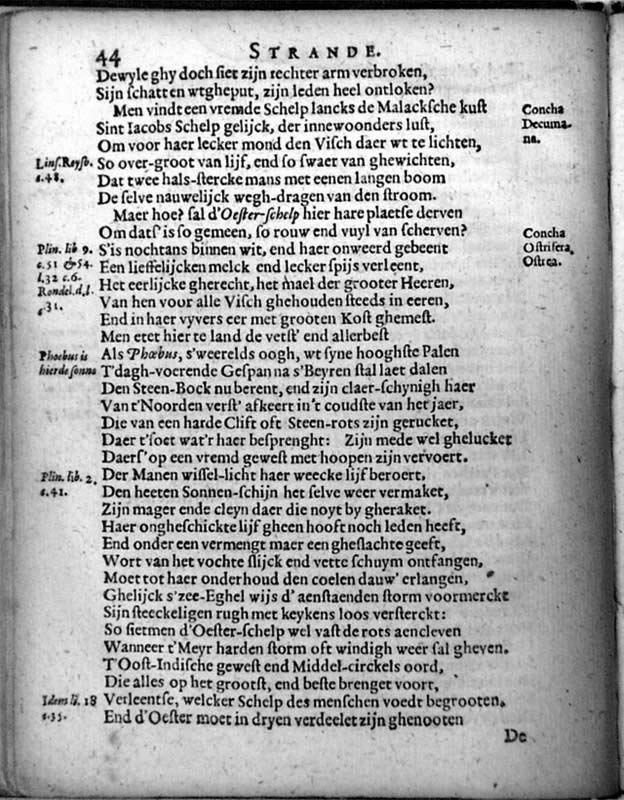 44 STRANDE.
Dewyle ghy doch siet zijn rechter arm verbroken,
Sijn schatt en wtgheput, zijn leden heel ontloken?
Men vindt een vremde Schelp lancks de Malacksche kust
Concha Decuma-
na.
Sint Iacobs Schelp gelijck, der innewoonders lust,
Om voor haer lecker mond den Visch daer wt te lichten,
Lins. Reysb.
c.48.
So over-groot van lijf, end so swaer van ghewichten,
Dat twee hals-stercke mans met eenen langen boom
De selve nauwelijck wegh-dragen van den stroom.
Maer hoe? sal d'Oester-schelp hier hare plaetse derven
Om dats' is so gemeen, so rouw end vuyl van scherven?
Concha
Ostrifera,
Ostrea.
Plin. lib 9.
c.51 &54.
l.32 c.6.
Rondel. d.l.
c.31.
S'is nochtans binnen wit, end haer onweerd gebeent
Een lieffelijcken melck end lecker spijs verleent,
Het eerlijcke gherecht, het mael der grooter Heeren,
Van hen voor alle Visch ghehouden steeds in eeren,
End in haer vyvers eer met grooten Kost ghemest.
Men etet hier te land de verst' end allerbest
Phoebus is
hier de sonne
Als Phœbus, s'weerelds oogh, wt syne hooghste Palen
T'dagh-voerende Gespan na s'Beyren stal laet dalen
Den Steen-Bock nu berent, end zijn claer-schynigh haer
Van t'Noorden verst' afkeert in't coudste van het jaer,
Die van een harde Clift oft Steen-rots zijn gerucket,
Daer t'soet wat'r haer besprenght: Zijn mede wel ghelucket
Daers' op een vremd gewest met hoopen zijn vervoert.
Plin. lib. 2.
c.41.
Der Manen wissel-licht haer weecke lijf beroert.
Den heeten Sonnen-schijn het selve weer vermaket,
Zijn mager ende cleyn daer die noyt by gheraket.
Haer ongheschickte lijf gheen hooft noch leden heeft,
End onder een vermengt maer een gheslachte geeft,
Wort van het vochte slijck end vette schuym ontfangen,
Moet tot haer onderhoud den coelen dauw' erlangen,
Ghelijck s'zee-Eghel wijs d'aenstaenden storm voormerckt
Sijn steeckeligen rugh met keykens loos versterckt:
So sietmen d'Oester-schelp wel vast de rots aencleven
Wanneer t'Meyr harden storm oft windigh weer sal gheven.
T'Oost-Indische gewest end Middel-circkels oord,
Die alles op het grootst, end beste brenget voort,
Idem li. 18
c.35.
Verleentse, welcker Schelp des menschen voedt begrooten.
End d'Oester moet in dryen verdeelet zijn ghenooten
De